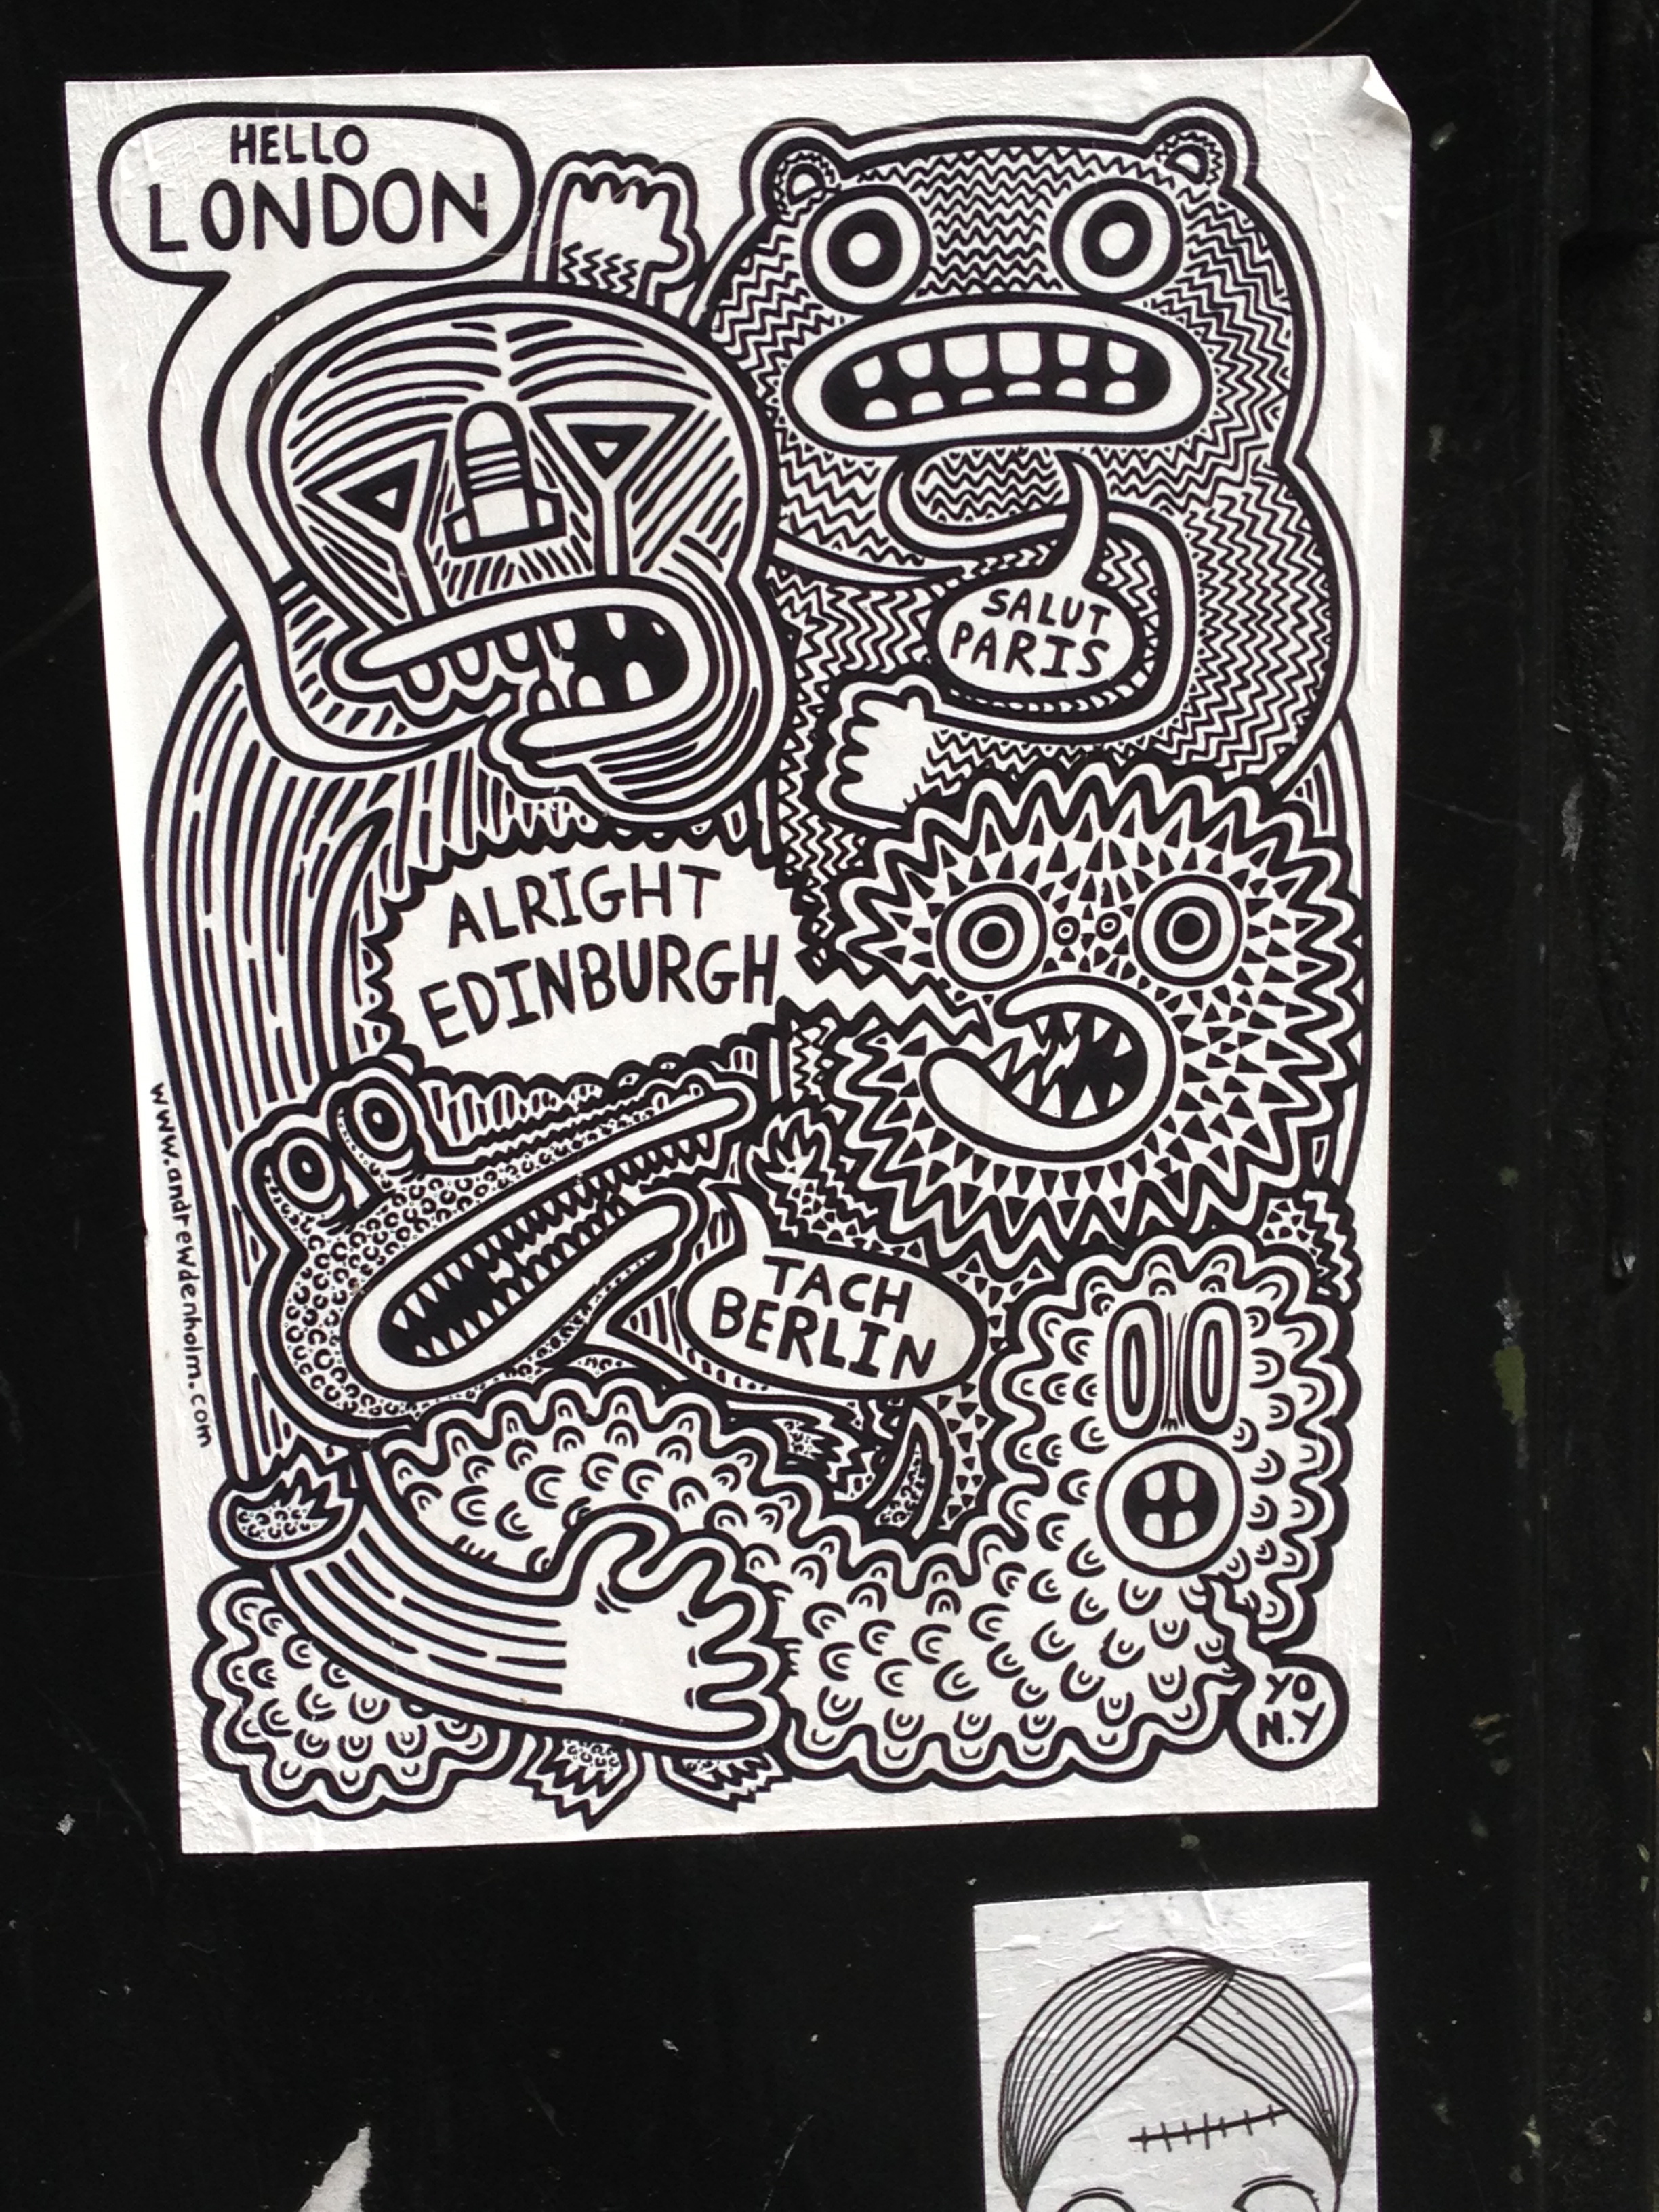 HELLO
LONDON
SALUT
PARIS
ALRIGHT
EDINBURGH
TACH
BERLIN
YO
N.Y
www.andrewdenholm.com